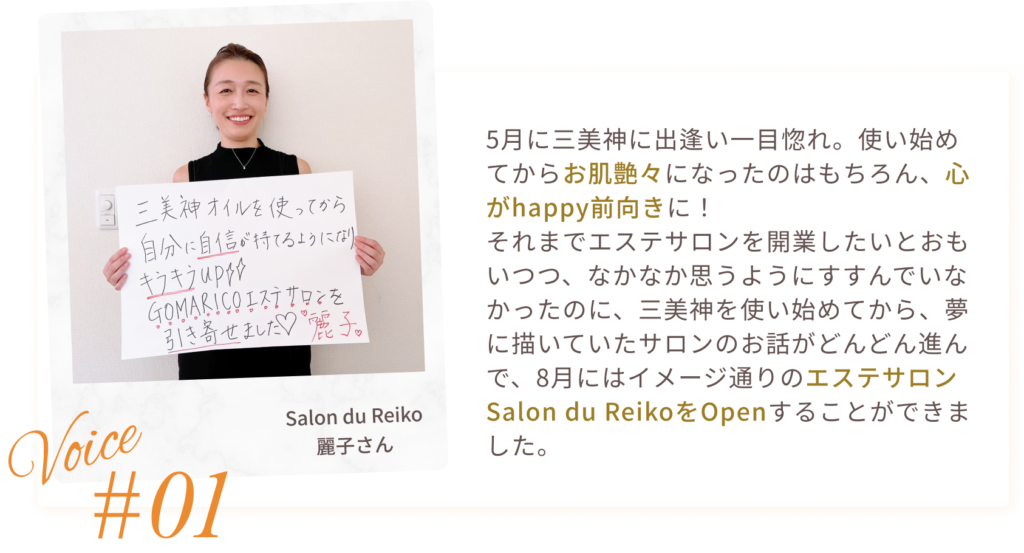 三美神オイルを使ってから
自分に自信が持てるようになり
キラキラUP⇧⇧
GOMARICOエステサロンを
引き寄せました♡麗子
Salon du Reiko
麗子さん
Voice
#01
5月に三美神に出逢い一目惚れ。使い始め
てからお肌艶々になったのはもちろん、心
がhappy前向きに！
それまでエステサロンを開業したいとおも
いつつ、なかなか思うようにすすんでいな
かったのに、三美神を使い始めてから、夢
に描いていたサロンのお話がどんどん進ん
で、8月にはイメージ通りのエステサロン
Salon du ReikoをOpenすることができま
した。